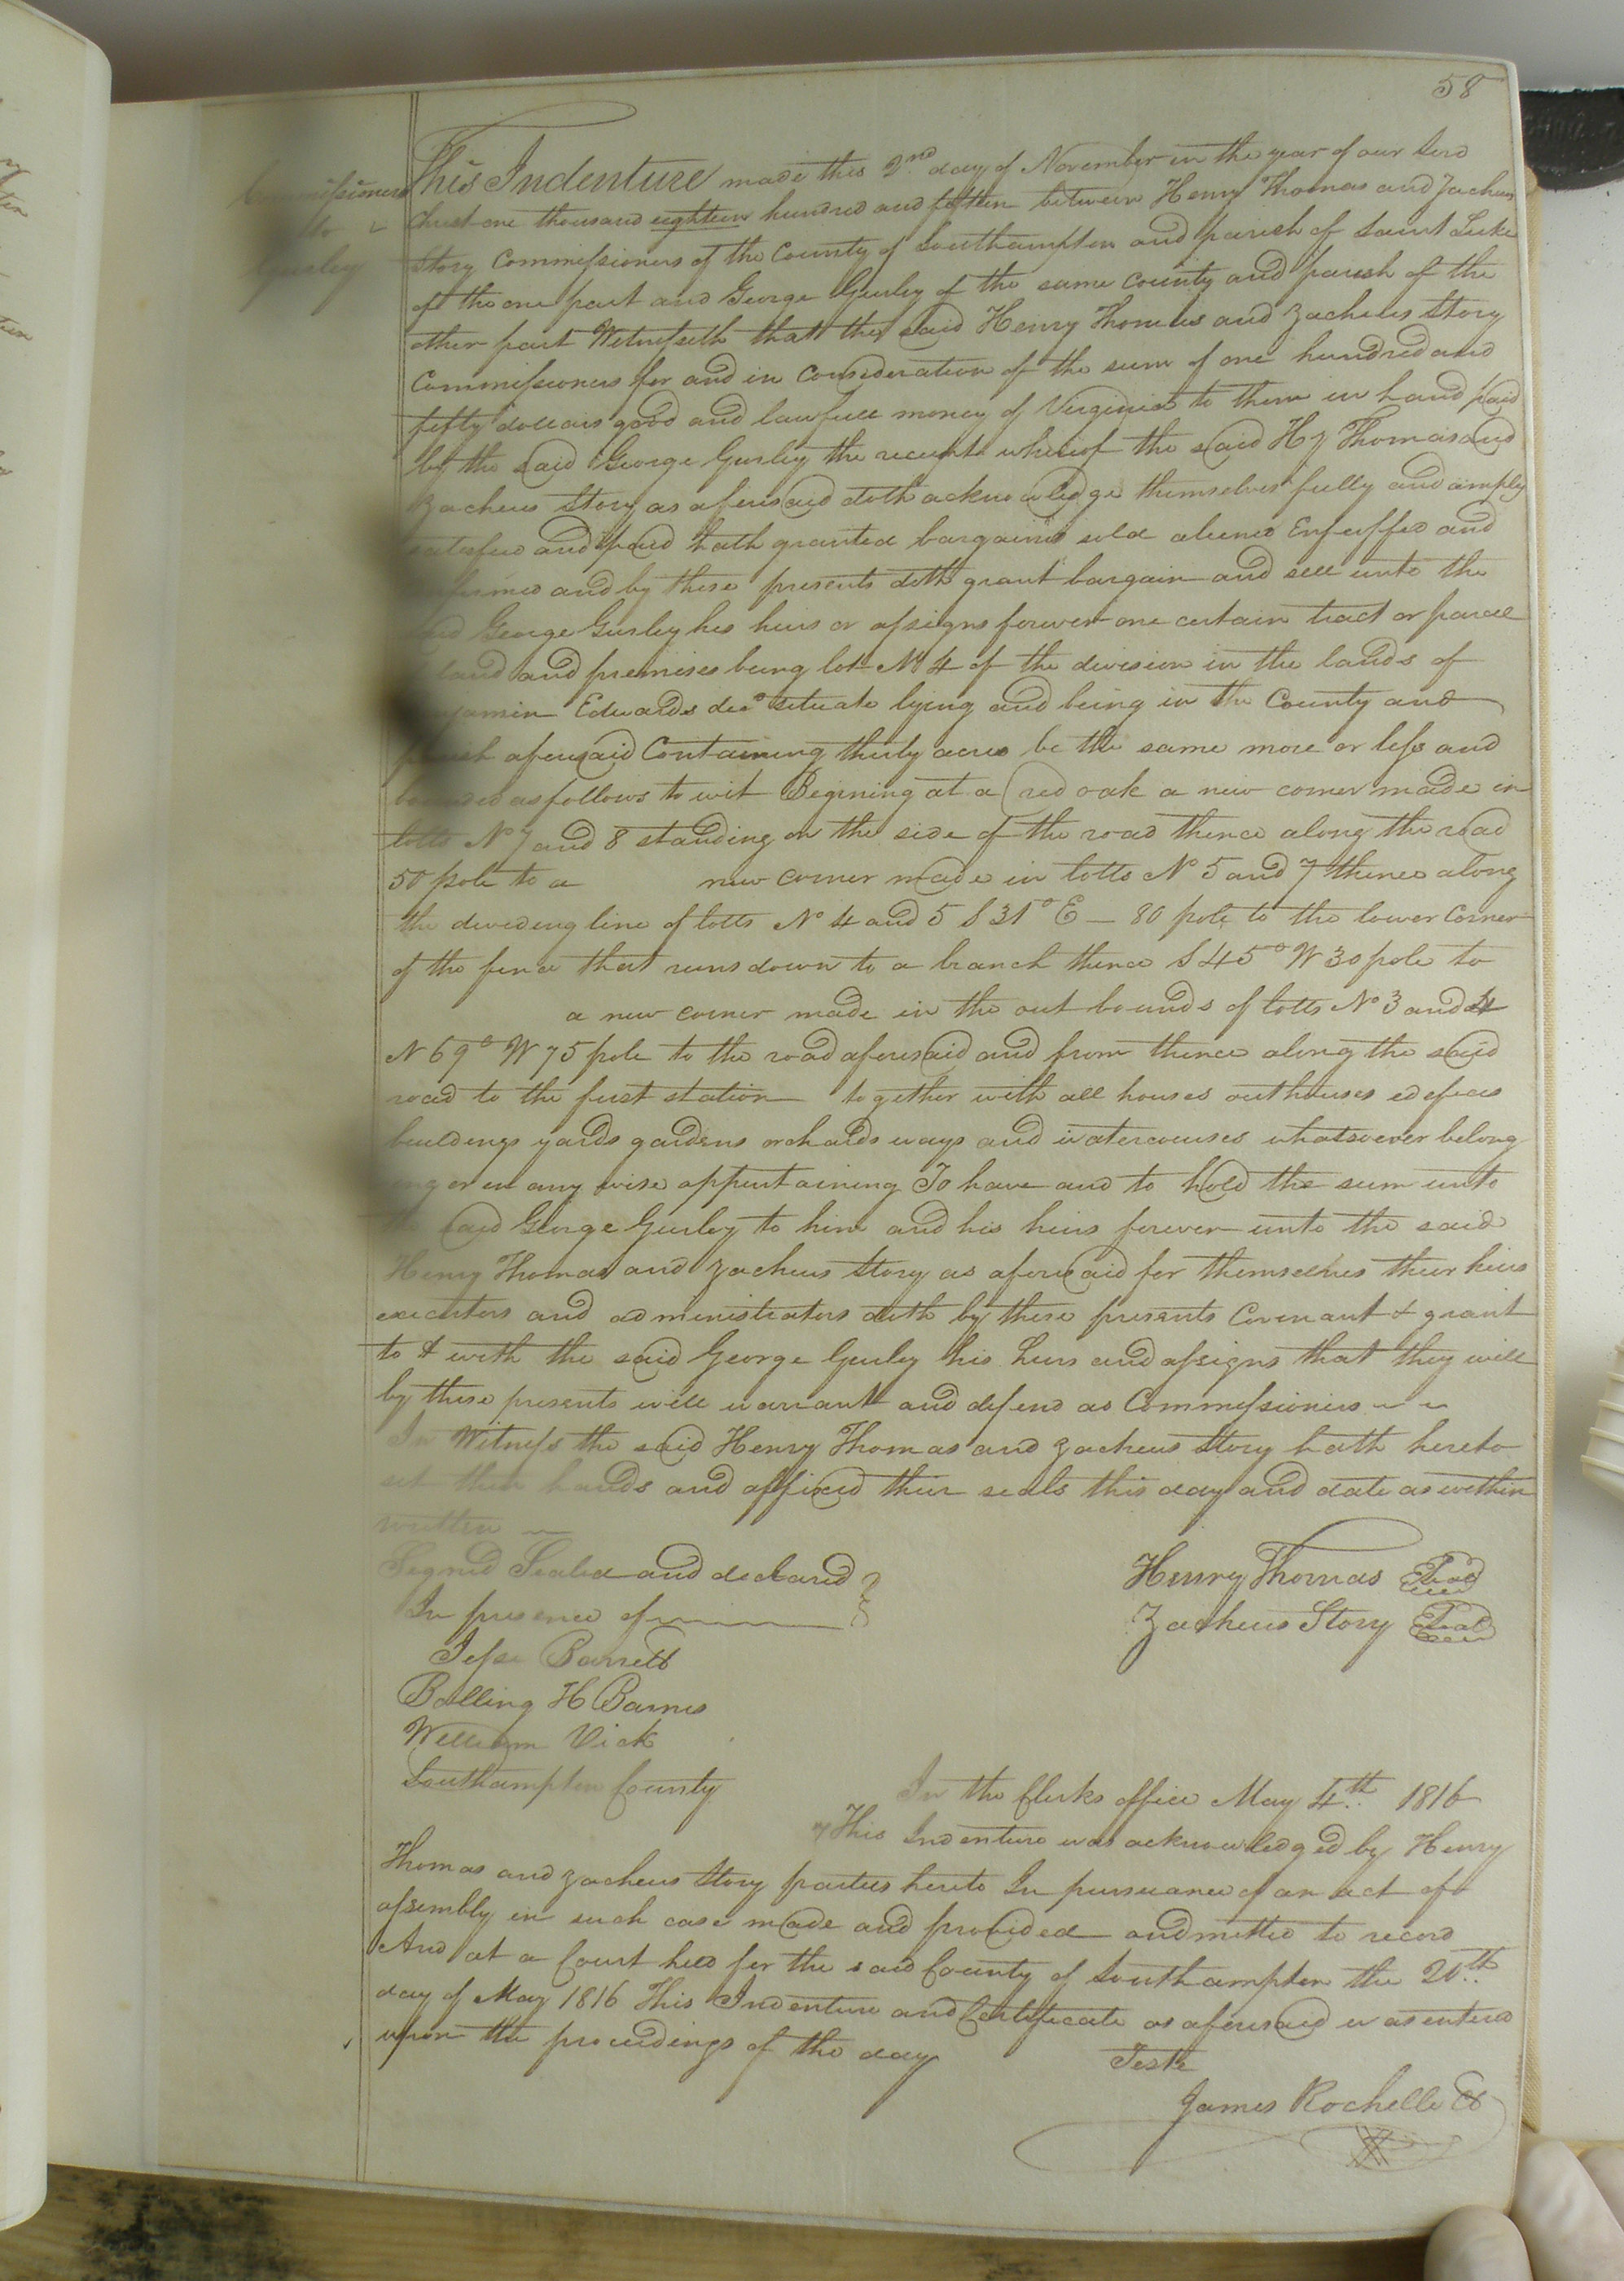 58
Commissioners
to
Gurley
This Indenture made this 2nd day of November in the year of our Lord
Christ one thousand eighteen hundred and fifteen between Henry Thomas and Zacheus
Story Commissioners of the County of Southampton and parish of Saint Luke
of the one part and George Gurley of the same county and parish of the
other part Witnesseth that the said Henry Thomas and Zacheus Story
Commissioners for and in consideration of the sum of one hundred and
fifty dollars good and lawfull money of Virginia to them in hand paid
by the said George Gurley the receipt whereof the said Hy Thomas and
Zacheus Story as aforesaid doth acknowledge themselves fully and amply
satisfied and paid hath granted bargained sold aliened Enfeoffed and
and by these presents doth grant bargain and sell unto the
George Gurley his heirs or assigns forever one certain tract or parcel
land and premises being lot No 4 of the division in the lands of
Edwards decd situate lying and being in the County and
aforesaid Containing thirty acres be the same more or less and
bounded as follows to wit Begining at a red oak a new corner made in
lotts No 7 and 8 standing on the side of the road thence along the road
50 pole to a new corner made in lotts No 5 and 7 thence along
the dividing line of lotts No 4 and 5 S 31° E — 80 pole to the lower Corner
of the fence that runs down to a branch thence S 45° W 30 pole to
a new corner made in the out bounds of lotts No 3 and 4
N 69° W 75 pole to the road aforesaid and from thence along the said
road to the first station together with all houses outhouses edefices
buildings yards gardens orchards ways and watercourses whatsoever belong
ing or in any wise appertaining To have and to hold the sum unto
said George Gurley to him and his heirs forever unto the said
Henry Thomas and Zacheus Story as aforesaid for themselves their heirs
executors and administrators doth by these presents Covenant & grant
to & with the said George Gurley his heirs and assigns that they will
by these presents will warrant and defend as Commissioners
In Witness the said Henry Thomas and Zacheus Story hath hereto
set their hands and affixed their seals this day and date as within
written
Signed Sealed and declared
In presence of
Henry Thomas Seal
Zacheus Story Seal
Jesse Barrett
Bolling H Barnes
William Vick
Southampton County
In the Clerks office May 4th 1816
This Indenture was acknowledged by Henry
Thomas and Zacheus Story parties hereto In pursuance of an act of
assembly in such case made and provided and mitted to record
And at a Court held for the said County of Southampton the 20th
day of May 1816 This Indenture and Certificate as aforesaid was entered
upon the proceedings of the day
Teste
James Rochelle